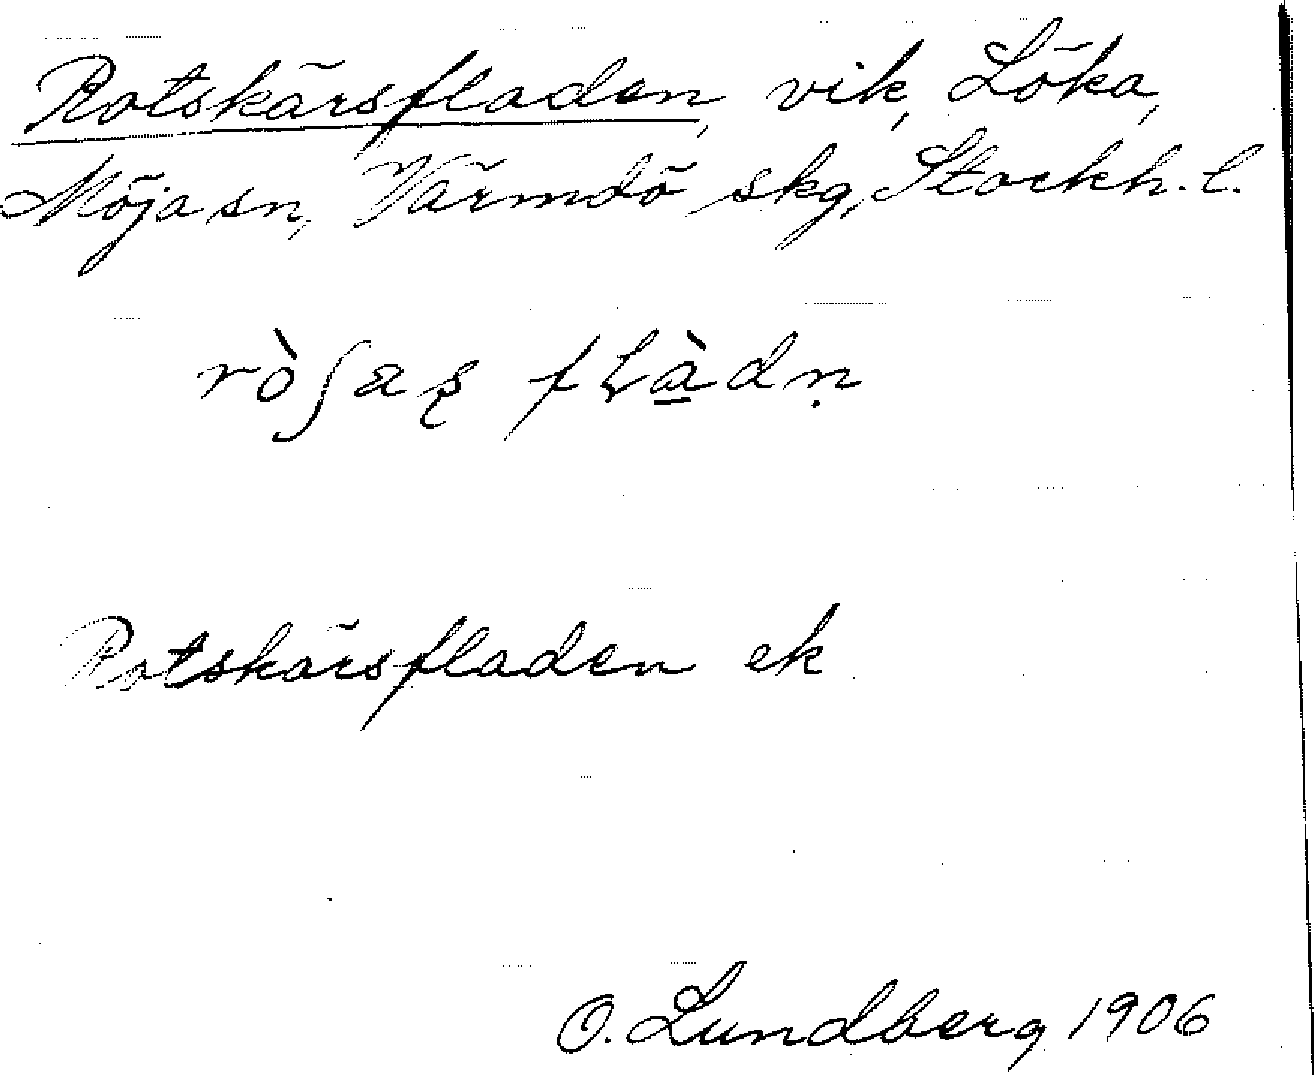 Rotskärsfladen, vik, Löka,
Möja sn, Värmdö skg, Stockh. l.
ròʃaʂ fɭàdṇ
Rotskärsfladen ek
O. Lundberg 1906